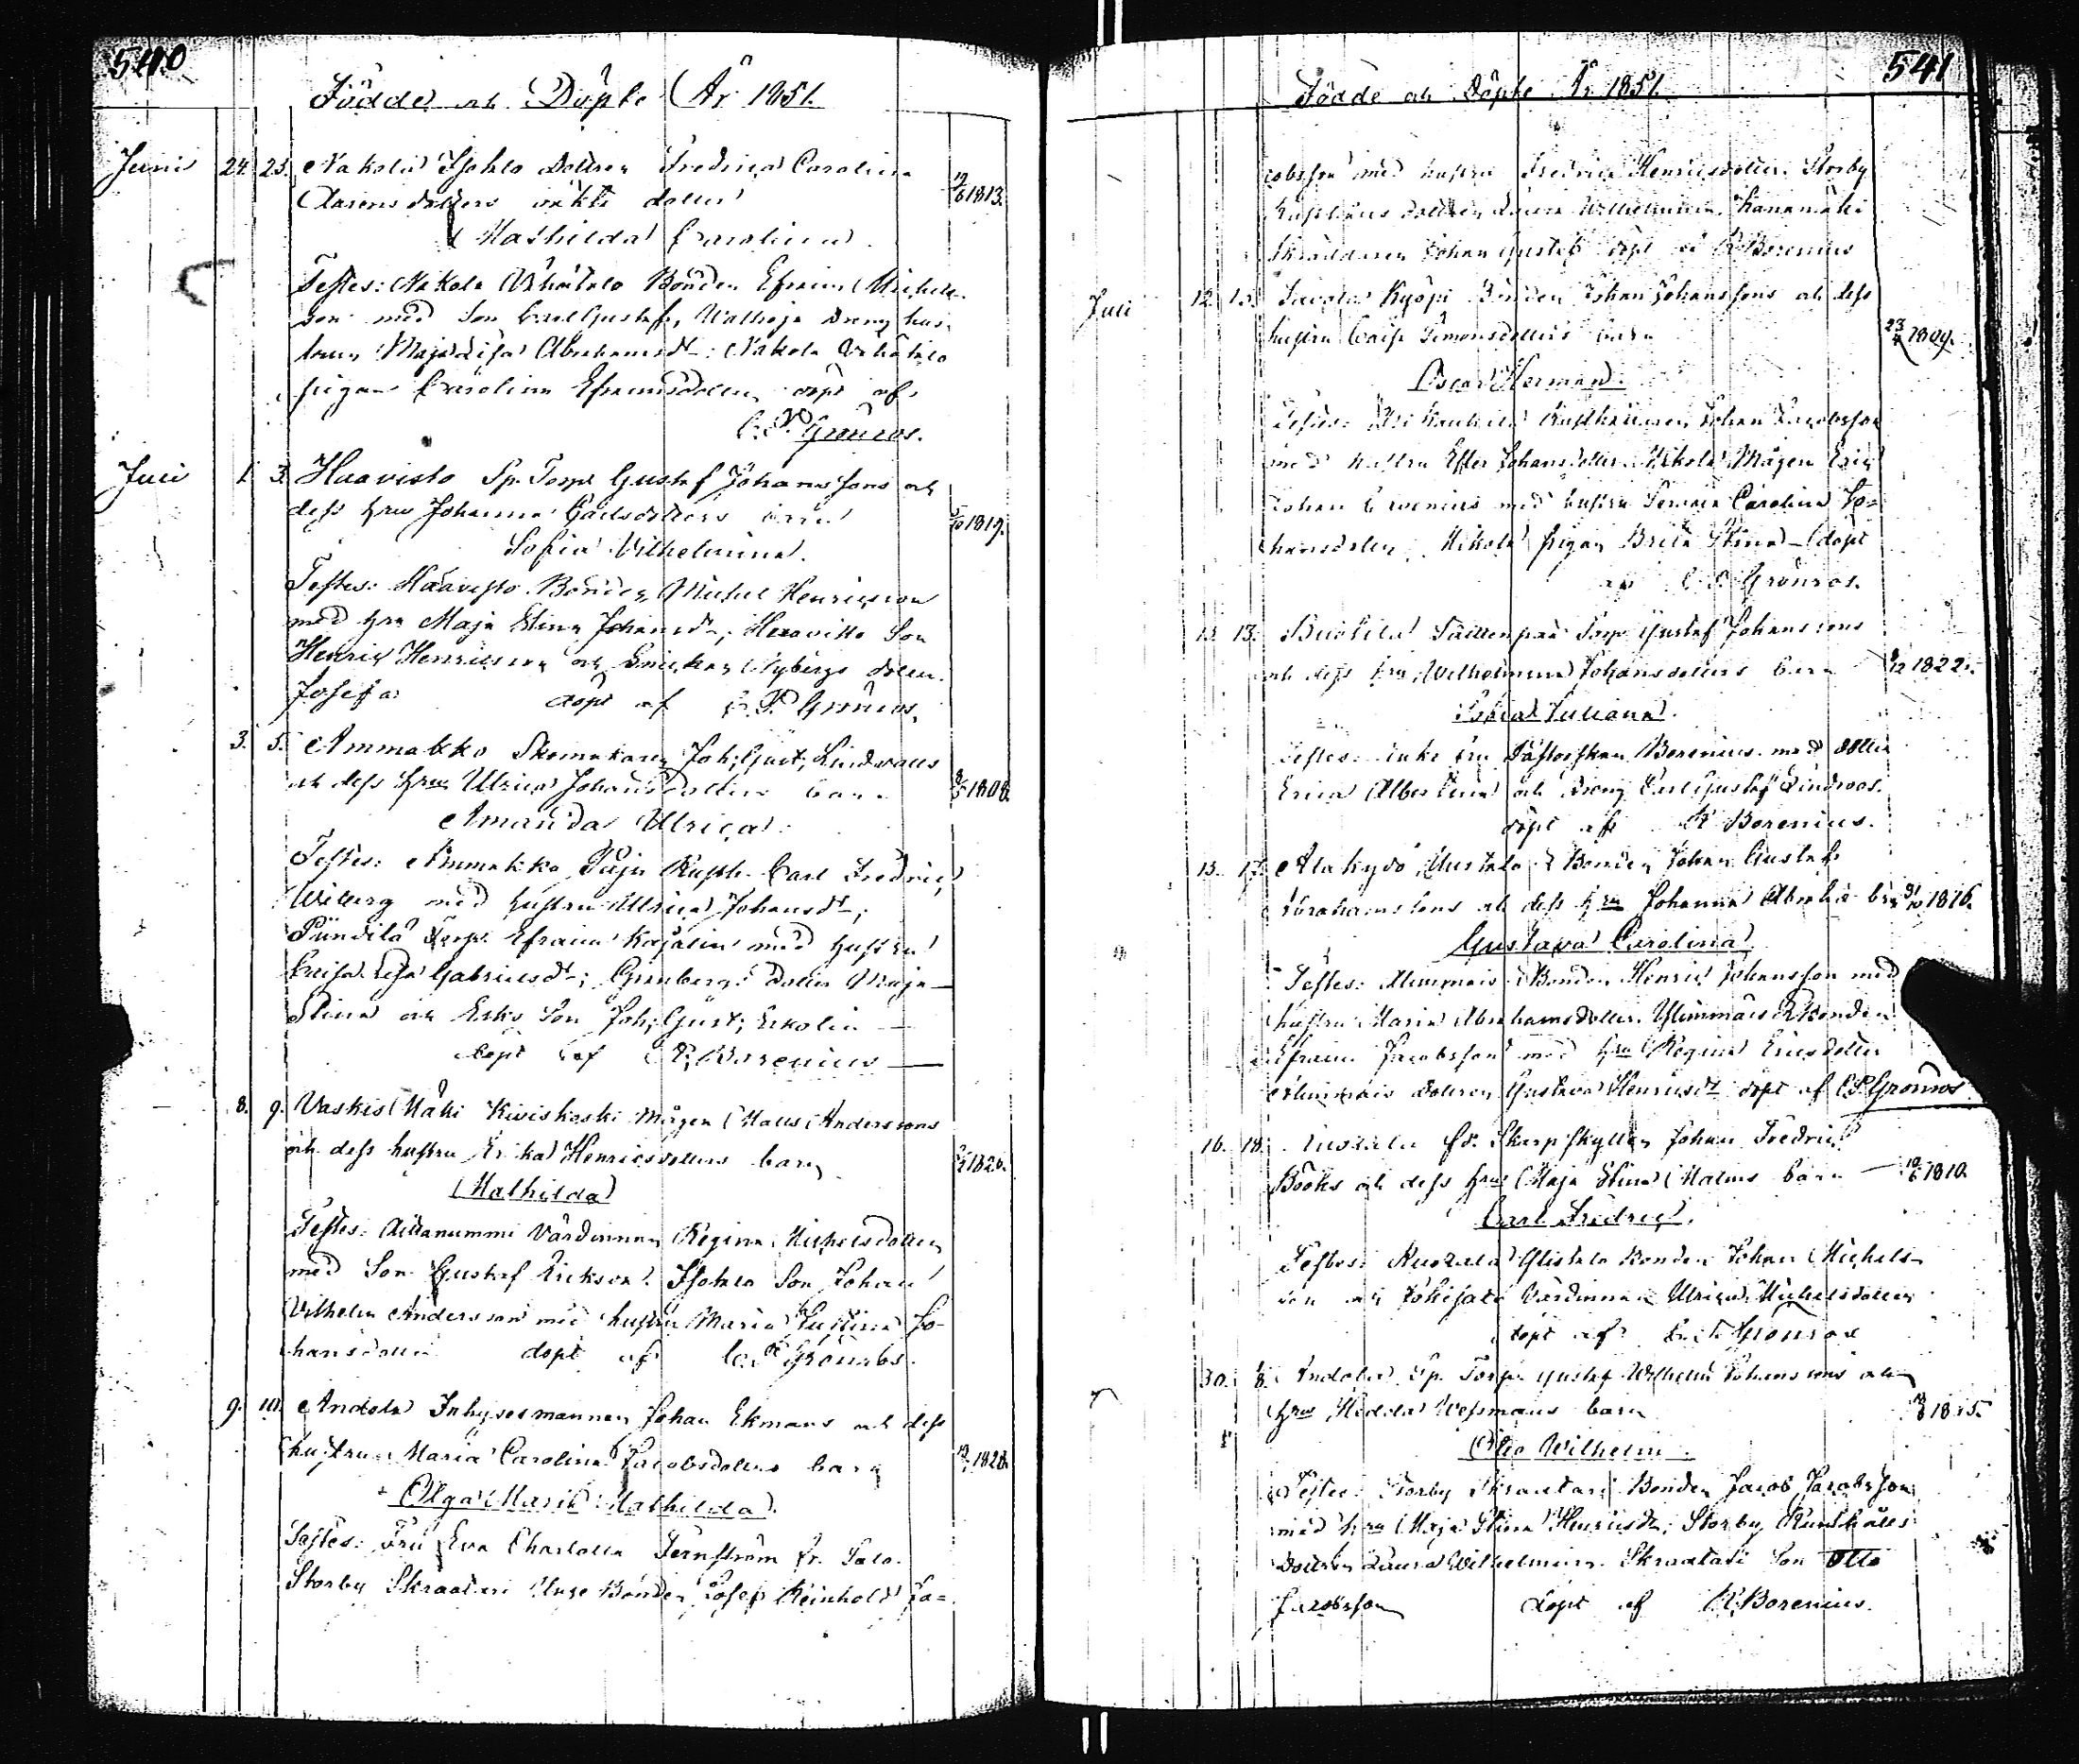 540
Födde och Döpte År 1851.
Juni 24. 25. Nakola Isotalo Dottren Fredrica Carolina 12/6 1813.
Clarensdotters oäkta dotter
Mathilda Carolina.
Testes: Nakola Vähätalo Bonden Efraim Michels-
son med Son Carl Gustaf, Dreng hus-
trun Maja Lisa Abrahamsdr; Nakola Vähätalo
pigan Carolina Efraimsdotter döpt af
C. P. Grönros.
Juli 1. 3. Haavisto Sp. Torp. Gustaf Johanssons och
dess hru Johanna Carlsdotters barn 5/10 1819.
Sofia Vilhelmina.
Testes: Haavisto Bonden Michel Henricsson
med hru Maja Stina Johansdr; Haavisto Son
Henric Henricsson och Snickar Nybergs dotter
Josefa döpt af C. P. Grönros.
3. 5. Ammakko Skomakaren Joh; Gust; Lindvalls
och dess hru Ulrica Johansdotters barn 1808.
Amanda Ulrica.
Testes: Ammakko Rusth. Carl Fredric
Wiberg med hustru Ulrica Johansdr;
Pundila Torp. Efraim Kajalin med hustru
Caisa Lisa Gabrielsdr; Grönbergs dotter Maja
Stina och Esko Son Joh; Gust; Eskolin
döpt af A; Borenius
8. 9. Vaskis Mäki Kiviskoski Mågen Matts Anderssons
och dess hustru Erika Henricsdotters barn 1826.
Mathilda
Testes: Aittanummi Värdinnan Regina Michelsdotter
med Son Gustaf Ericsson. Isotalo Son Johan
Vilhelm Andersson med hustru Maria Justina Jo-
hansdotter döpt af C. P. Grönros.
9. 10. Andola Inhysesmannen Johan Ekmans och dess
hustru Maria Carolina Jacobsdotters barn 1828
Olga Maria Mathilda.
Testes: Fru Eva Charlotta Fernström fr. Salo.
Storby Skraatari Unge Bonden Josef Reinhold Ja=
541
Födde och Döpte År 1851.
cobsson med hustru Fredrica Henricsdotter. Storby
Rusthålls dottren Laura Wilhelmina. Kanamäki
Skräddaren Johan Gustaf döpt af A Borenius
Juli 12. 13. Kyöpi Bonden Johan Johanssons och dess
hustru Caisa Simonsdotters barn 23/4 1809.
Oscar Herman.
Testes: Rusthållaren Johan Jacobsson
med hustru Ester Johansdotter. Mikola Mågen Eric
Johan med hustru Carolina Jo=
hansdotter, Mikola pigan Brita Stina döpt
af C. P. Grönros.
13. 13. Torp Gustaf Johanssons
och dess hru Wilhelmina Johansdotters barn 1822.
Sofia Juliana.
Testes: Enke fru Pastorskan Borenius med dotter
Erica Albertina och Dreng Carl Gustaf Lindroos.
döpt af A Borenius.
15. 17. Alakyrö Bonden Johan Gustaf
Abrahamssons och dess hru Johanna barn 1816.
Gustava Carolina
Testes: Alimmais Bonden Henric Johansson med
hustru Maria Abrahamsdotter. Ylimmäis Bonden
Efraim Jacobsson med hru Regina Ericsdotter
Alimmais dottren Gustava Henricsdr döpt af C P Grönros
16. 18. fd. Skarpskytten Johan Fredric
Bööks och dess hru Maja Stina Malms barn 1810.
Carl Fredric.
Testes: Bonden Johan Michels-
son och Värdinnan Ulrica Michelsdotter
döpt af C. P. Grönros
30. 8. Andola Sp. Torp. Gustaf Wilhelm Johanssons och
hru Hedda Wessmans barn
Otto Wilhelm.
Testes: Storby Skraatari Bonden Jacob Jacobsson
med hru Maja Stina Henricsdr; Storby Rusthålls
dottren Laura Wilhelmina. Skraatari Son Otto
Jacobsson döpt af A; Borenius.